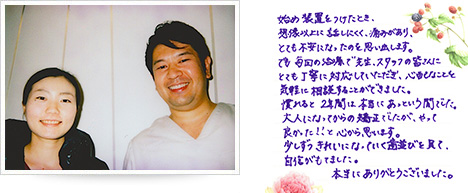 始め装置をつけたとき、
想像以上に話しにくく、痛みがあり、
とても不安になったのを思い出します。
でも毎回の治療で先生、スタッフの皆さんに
とても丁寧に対応していただき、心配なことを
気軽に相談することができました。
慣れると2年間は本当にあっという間でした。
大人になってからの矯正でしたが、やって
良かった!!と心から思います。
少しずつきれいになっていく歯並びを見て、
自信がもてました。
本当にありがとうございました。